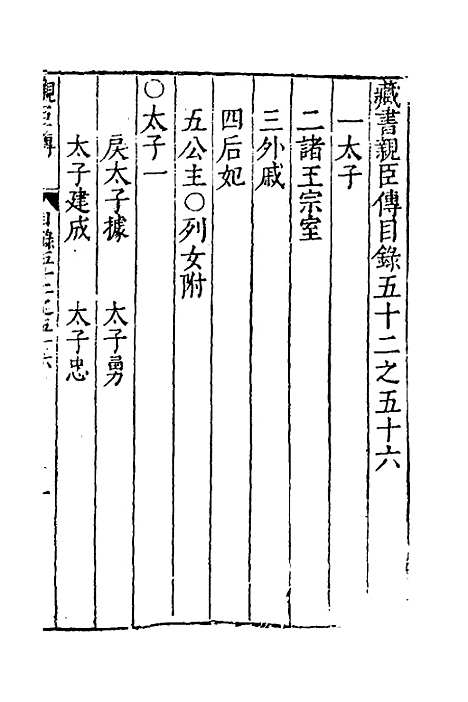 藏書親臣傳目錄五十二之五十六
一太子
二諸王宗室
三外戚
四后妃
五公主〇列女附
〇太子一
戾太子據　太子勇
太子建成　太子忠
親臣傳　目錄五十二之五十六　一